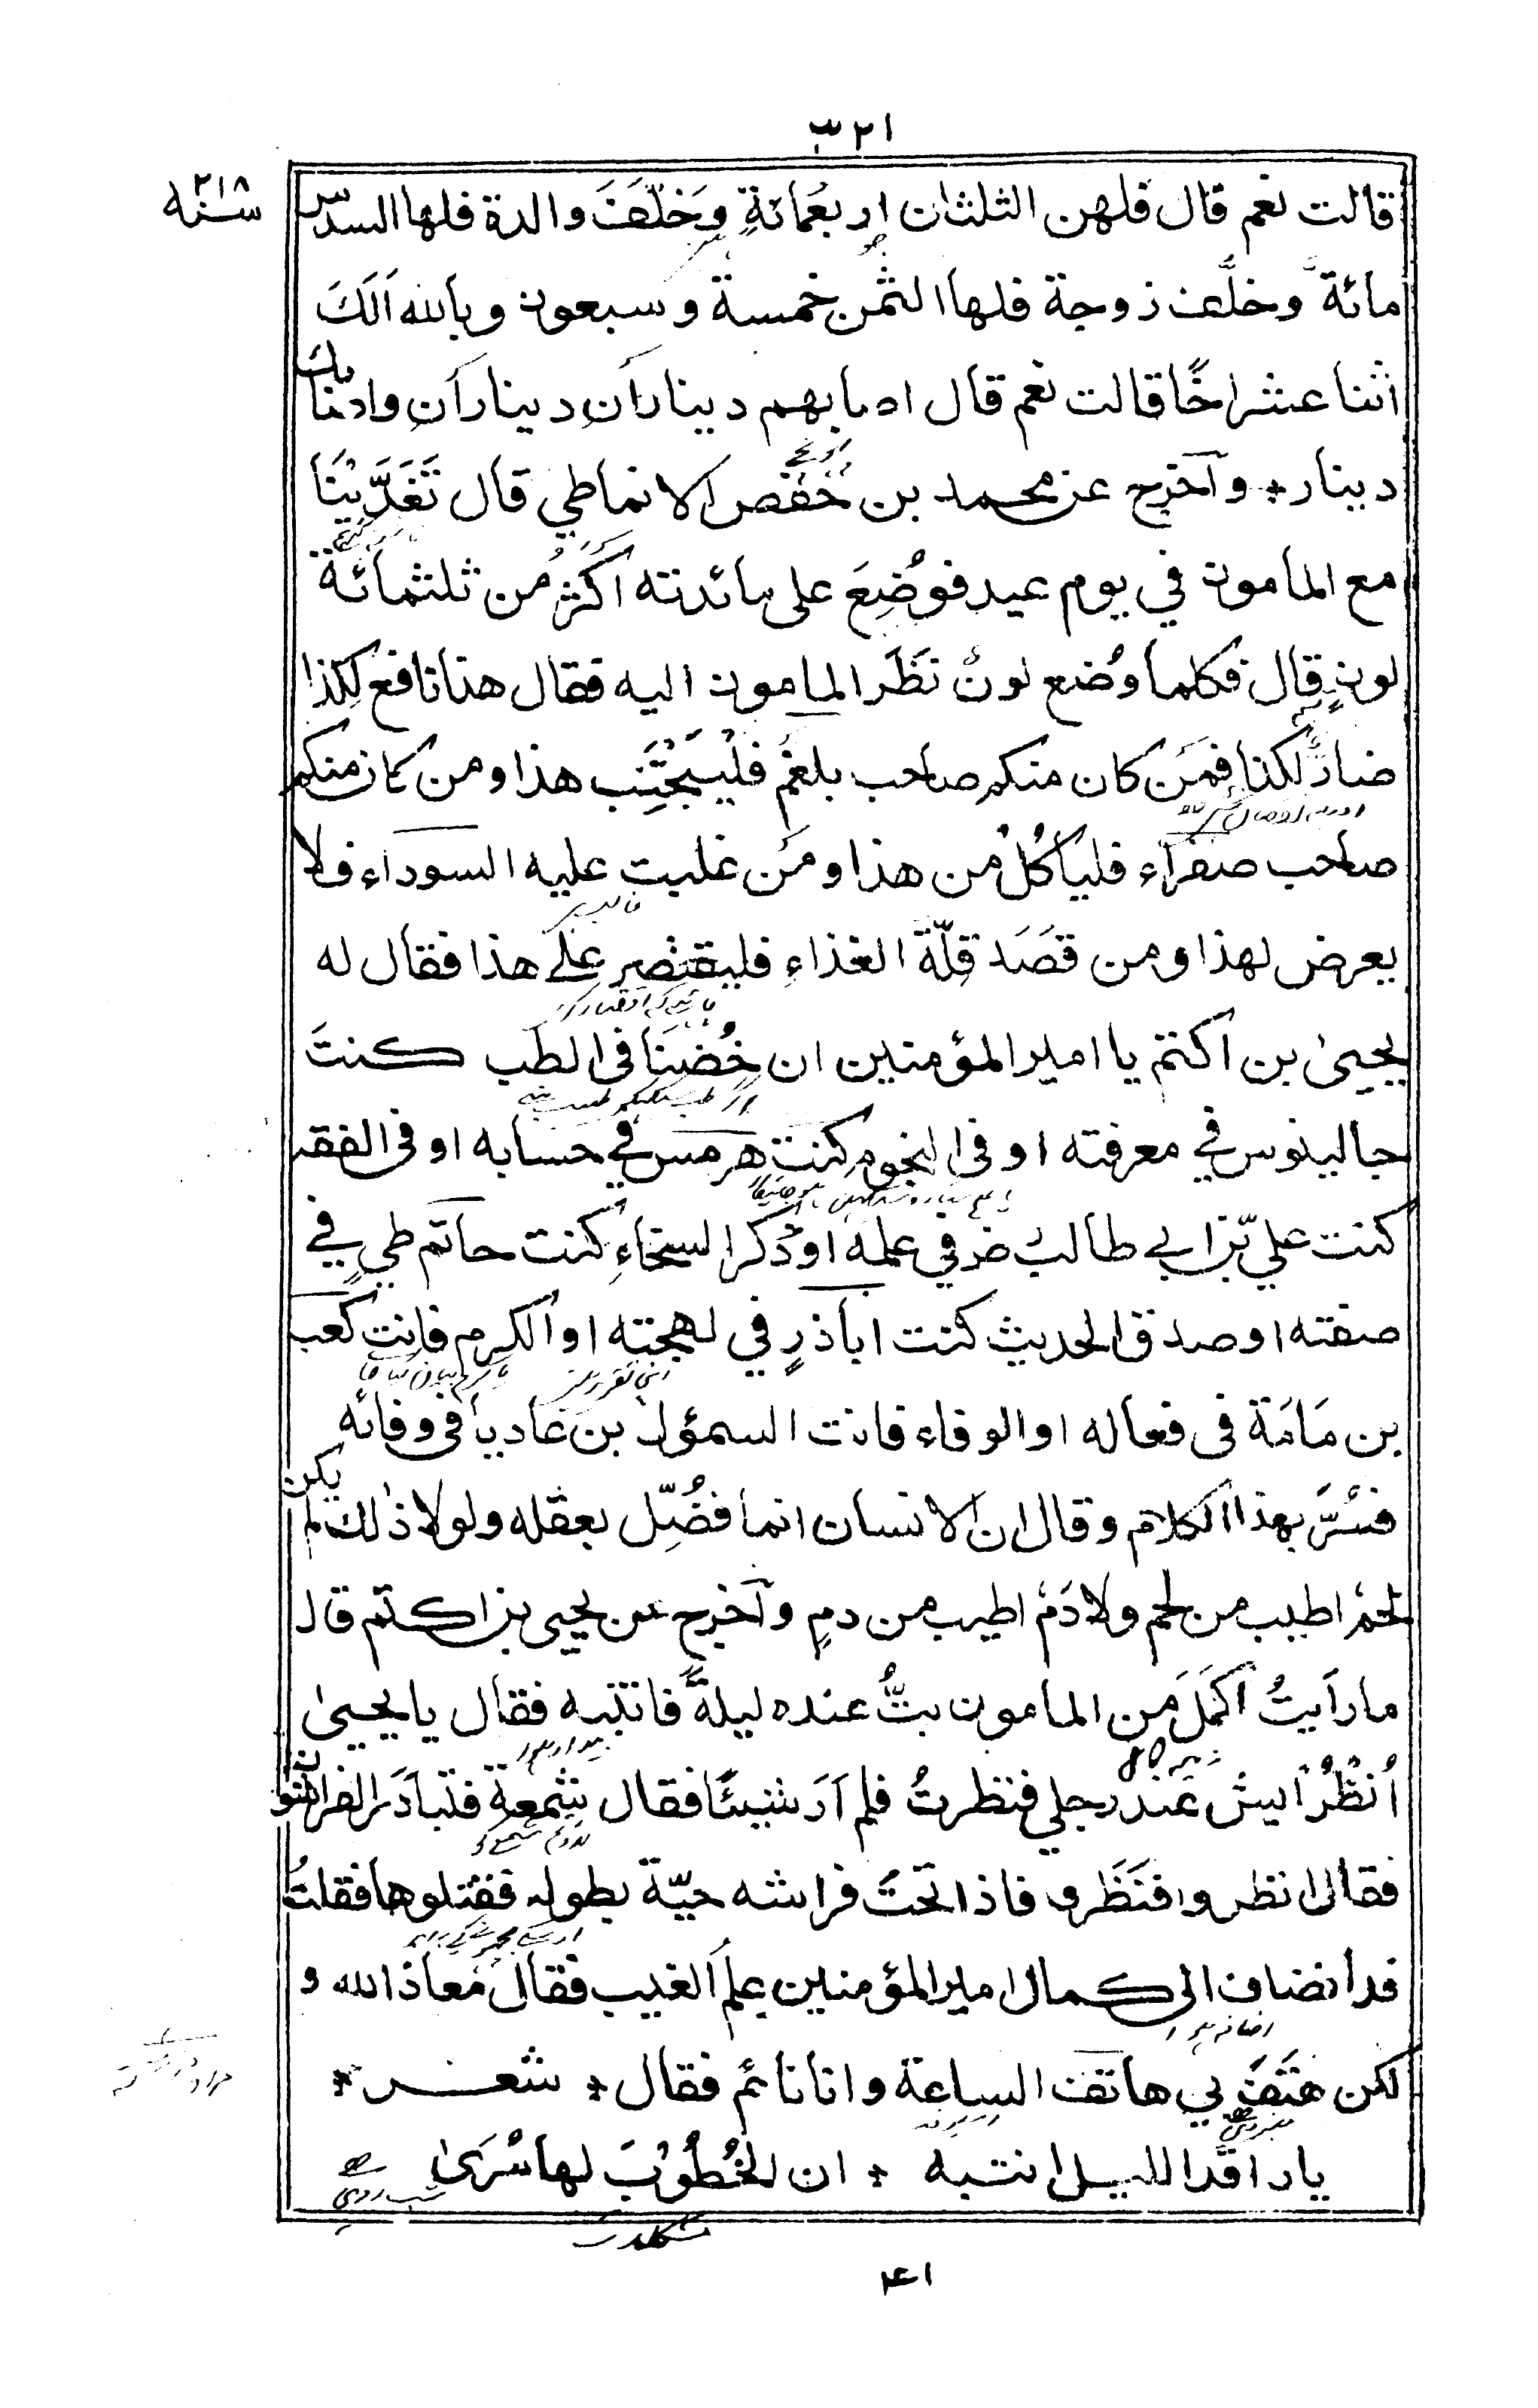 ٣٢١
سنة ٢١٨
قالت نعم قال فلهن الثلثان اربعمائةٍ وخلَّفَتَ والدة فلها السدس
مائة وخلَّف زوجة فلها الثُمن خمسة وسبعون وبالله اَلَكَ
اثنا عشر اخًا قالت نعم قال اصابهم دينارانِ دينارانِ واصابك
دينار * وآخرج عن محمد بن حَفص الانماطي قال تَغَدَّيْنَا
مع المامون في يوم عيد فوُضِعَ على مائدته اكثرُ من ثلثمائة
لونٍ قال فكلما وُضع لونٌ نَظَرَ المامون اليه فقال هذا نافع لكذا
ضارٌ لكذا فمَن كان منكم صاحب بلغم فليَجْتَنِب هذا ومن كان منكم
صاحب صفراء فلياكُلْ من هذا ومَن غلبت عليه السوداء فلا
يعرض لهذا ومن قصَدَ قِلّةَ الغذاءِ فليقتصر علٰے هذا فقال له
يحيىٰ بن اكثم يا امير المؤمنين ان خُضنَا في الطب كنتَ
جالينوس في معرفته او في النجومِ كنت هرمس في حسابه او في الفقه
كنت علي بن ابي طالب رض في علمه او ذُكر السخاءِ كنت حاتم طيٍ في
صفته او صدق الحديث كنت اباذرٍ في لهجته او الكرم فانت كعب
بن مَامَة في فعاله او الوفاء فانت السمؤل بن عاديا في وفائه
فسُرَّ بهذا الكلام وقال ان الانسان انما فُضِّل بعقله ولولا ذلك لم يكن
لحمٌ اطيب من لحم ولا دَمٌ اطيب من دمٍ وآخرج عن يحيى بن اكثم قال
ما رأيتُ اكمَلَ من المامون بتُّ عنده ليلةً فانتبه فقال يا يحيىٰ
اُنظُرْ ايشْ عند رجلي فنظرتُ فلم اَرَ شيئًا فقال شمعة فتبادَر الفراشون
فقال انظروا فنَظَروا فاذا تحتَ فراشه حيّة بطوله فقتلوها فقلتُ
قد انضاف الى كمال امير المؤمنين علم الغيب فقال معاذ الله و
لكن هَتَفَ بي هاتف الساعة وانا نائم فقال * شعر *
يا راقد الليل انتبه * ان الخُطُوْبَ لها سُرَىٰ
٤١